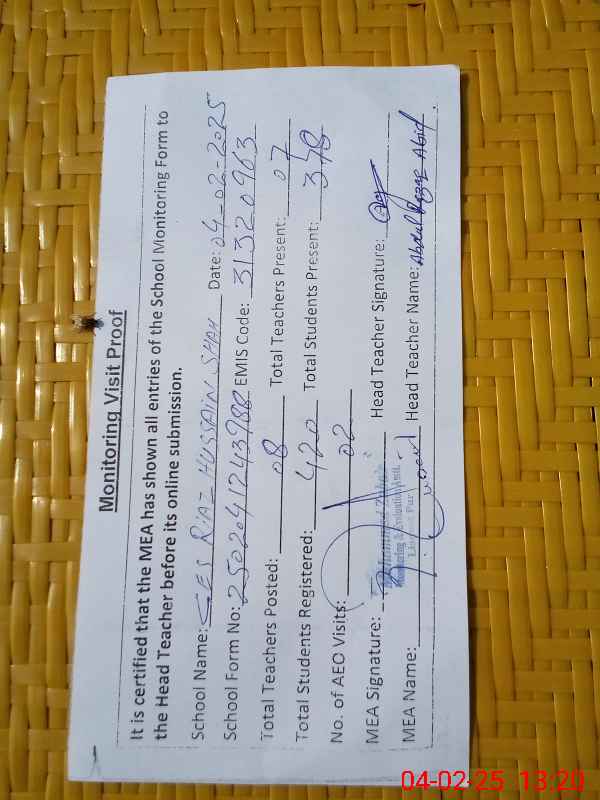 Monitoring Visit Proof
It is certified that the MEA has shown all entries of the School Monitoring Form to
the Head Teacher before its online submission.
School Name: GES RIAZ HUSSAIN SHAH Date: 04-02-2025
School Form No: EMIS Code: 31320963
Total Teachers Posted: 08 Total Teachers Present: 07
Total Students Registered: 420 Total Students Present: 348
No. of AEO Visits: 02
MEA Signature: Head Teacher Signature:
Monitoring & Evaluation
MEA Name: Head Teacher Name: Abdul Abid
04-02-25 13:20